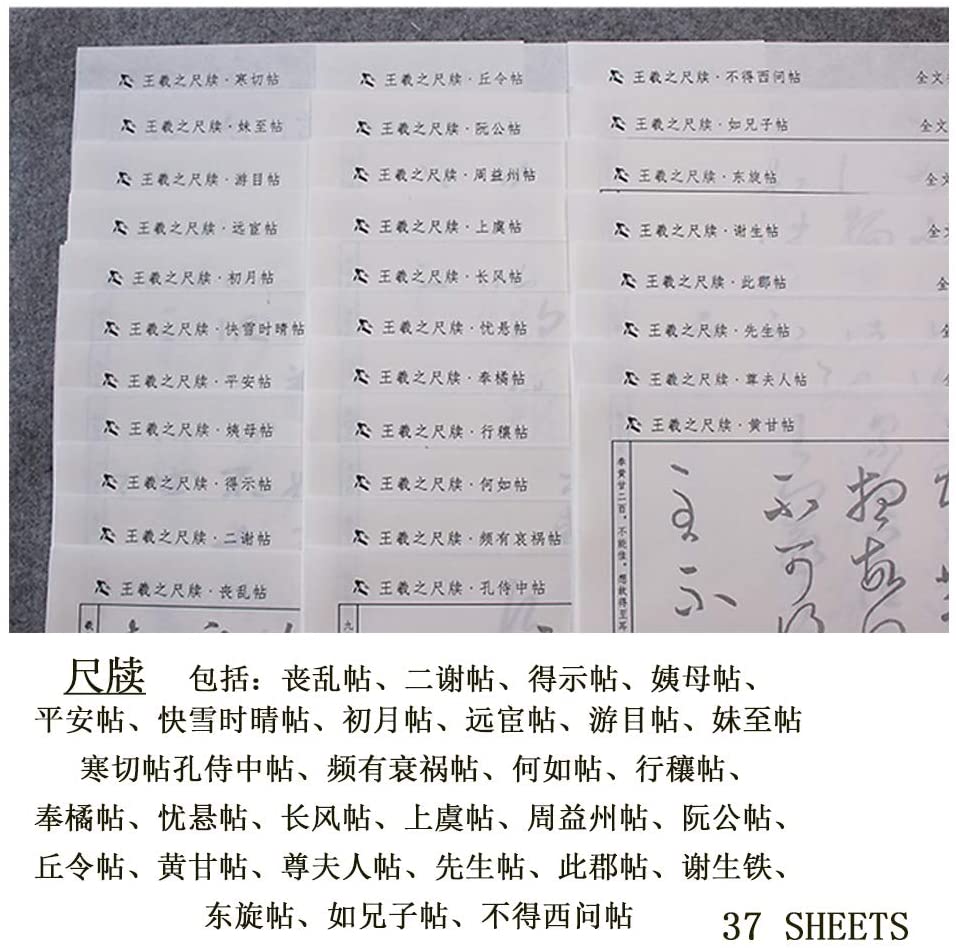 王羲之尺牍·寒切帖
王羲之尺牍·妹至帖
王羲之尺牍·游目帖
王羲之尺牍·远宦帖
王羲之尺牍·初月帖
王羲之尺牍·快雪时晴帖
王羲之尺牍·平安帖
王羲之尺牍·姨母帖
王羲之尺牍·得示帖
王羲之尺牍·二谢帖
王羲之尺牍·丧乱帖
王羲之尺牍·丘令帖
王羲之尺牍·阮公帖
王羲之尺牍·周益州帖
王羲之尺牍·上虞帖
王羲之尺牍·长风帖
王羲之尺牍·忧悬帖
王羲之尺牍·奉橘帖
王羲之尺牍·行穰帖
王羲之尺牍·何如帖
王羲之尺牍·频有哀祸帖
王羲之尺牍·孔侍中帖
九
王羲之尺牍·不得西问帖 全文
王羲之尺牍·如兄子帖 全文
王羲之尺牍·东旋帖 全文
王羲之尺牍·谢生帖 全
王羲之尺牍·此郡帖
王羲之尺牍·先生帖
王羲之尺牍·尊夫人帖
王羲之尺牍·黄甘帖
奉黄甘二百。不能佳。想故得至耳
尺牍 包括：丧乱帖、二谢帖、得示帖、姨母帖、
平安帖、快雪时晴帖、初月帖、远宦帖、游目帖、妹至帖
寒切帖孔侍中帖、频有衰祸帖、何如帖、行穰帖、
奉橘帖、忧悬帖、长风帖、上虞帖、周益州帖、阮公帖、
丘令帖、黄甘帖、尊夫人帖、先生帖、此郡帖、谢生铁、
东旋帖、如兄子帖、不得西问帖
37 SHEETS